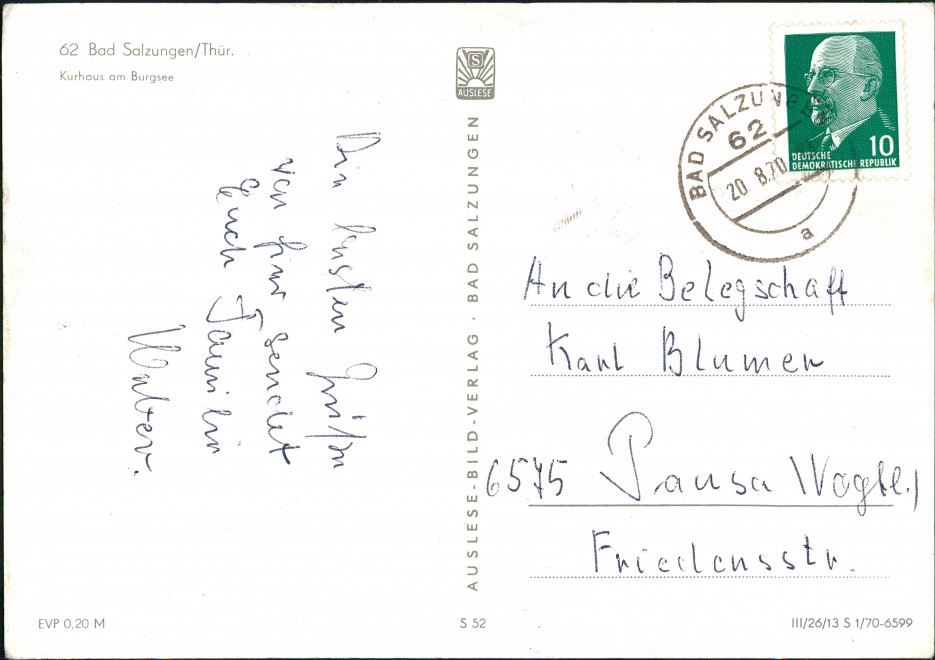 62 Bad Salzungen/Thür.
Kurhaus am Burgsee
AUSLESE
Die besten Grüße
von hier sendet
Euch Familie
Walter.
AUSLESE-BILD-VERLAG · BAD SALZUNGEN
BAD SALZUNGEN
62
20.8.70
a
10
DEUTSCHE
DEMOKRATISCHE REPUBLIK
An die Belegschaft
Karl Blumer
6575 Pausa /Vogtl./
Friedensstr.
EVP 0,20 M
S 52
III/26/13 S 1/70-6599